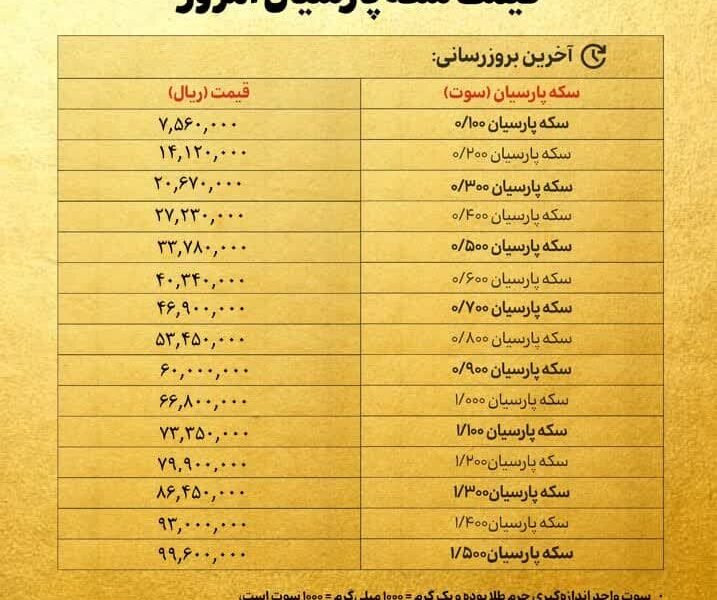 قیمت سکه پارسیان امروز
آخرین بروزرسانی:
سکه پارسیان (سوت) قیمت (ریال)
سکه پارسیان ۰/۱۰۰ ۷,۵۶۰,۰۰۰
سکه پارسیان ۰/۲۰۰ ۱۴,۱۲۰,۰۰۰
سکه پارسیان ۰/۳۰۰ ۲۰,۶۷۰,۰۰۰
سکه پارسیان ۰/۴۰۰ ۲۷,۲۳۰,۰۰۰
سکه پارسیان ۰/۵۰۰ ۳۳,۷۸۰,۰۰۰
سکه پارسیان ۰/۶۰۰ ۴۰,۳۴۰,۰۰۰
سکه پارسیان ۰/۷۰۰ ۴۶,۹۰۰,۰۰۰
سکه پارسیان ۰/۸۰۰ ۵۳,۴۵۰,۰۰۰
سکه پارسیان ۰/۹۰۰ ۶۰,۰۰۰,۰۰۰
سکه پارسیان ۱/۰۰۰ ۶۶,۸۰۰,۰۰۰
سکه پارسیان ۱/۱۰۰ ۷۳,۳۵۰,۰۰۰
سکه پارسیان۱/۲۰۰ ۷۹,۹۰۰,۰۰۰
سکه پارسیان۱/۳۰۰ ۸۶,۴۵۰,۰۰۰
سکه پارسیان۱/۴۰۰ ۹۳,۰۰۰,۰۰۰
سکه پارسیان۱/۵۰۰ ۹۹,۶۰۰,۰۰۰
· سوت واحد اندازه‌گیری جرم طلا بوده و یک گرم = ۱۰۰۰ میلی‌گرم = ۱۰۰۰ سوت است.